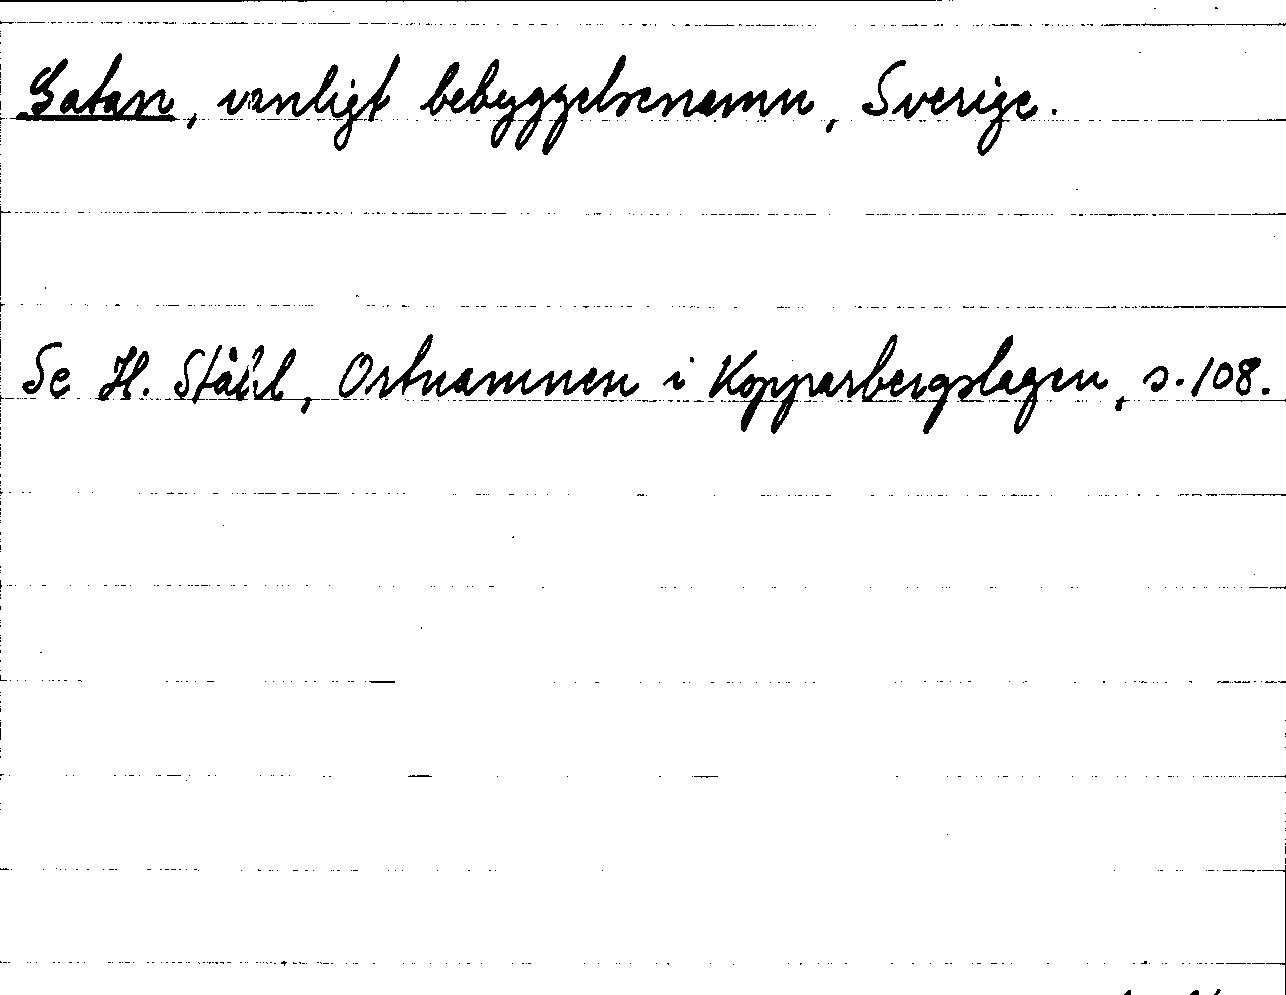 Gatan, vanligt bebyggelsenamn, Sverige.
Se H. Ståhl, Ortnamnen i Kopparbergslagen, s. 108.